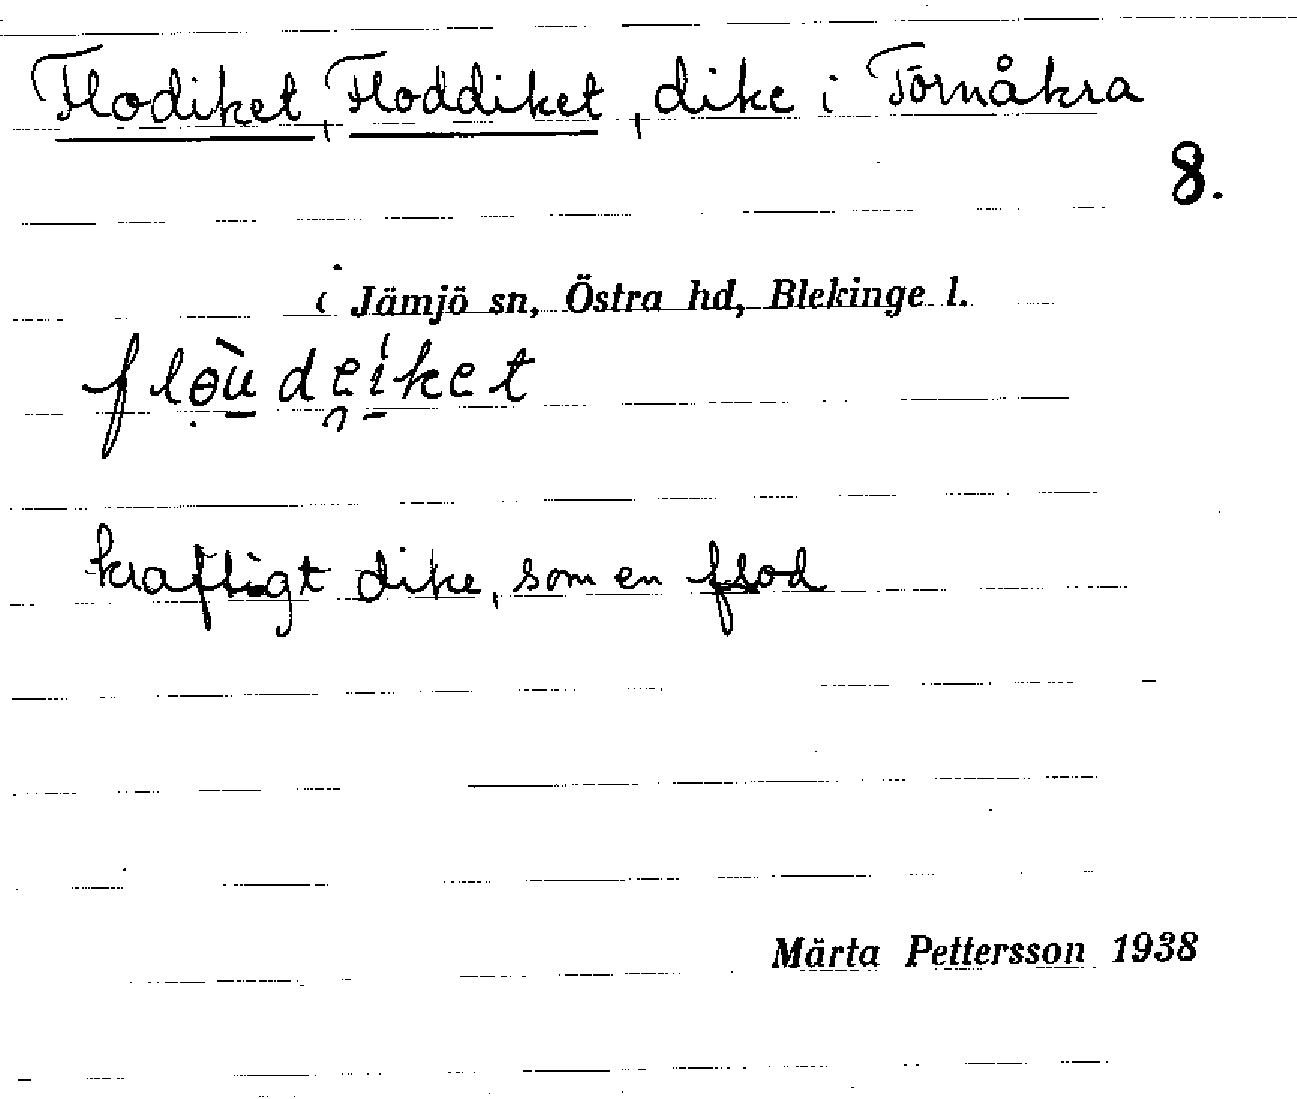 Flodiket, Floddiket, dike i Törnåkra
8.
i Jämjö sn, Östra hd, Blekinge l.
flɵ̣̀u̲dei̲ket
kraftigt dike, som en flod
Märta Pettersson 1938